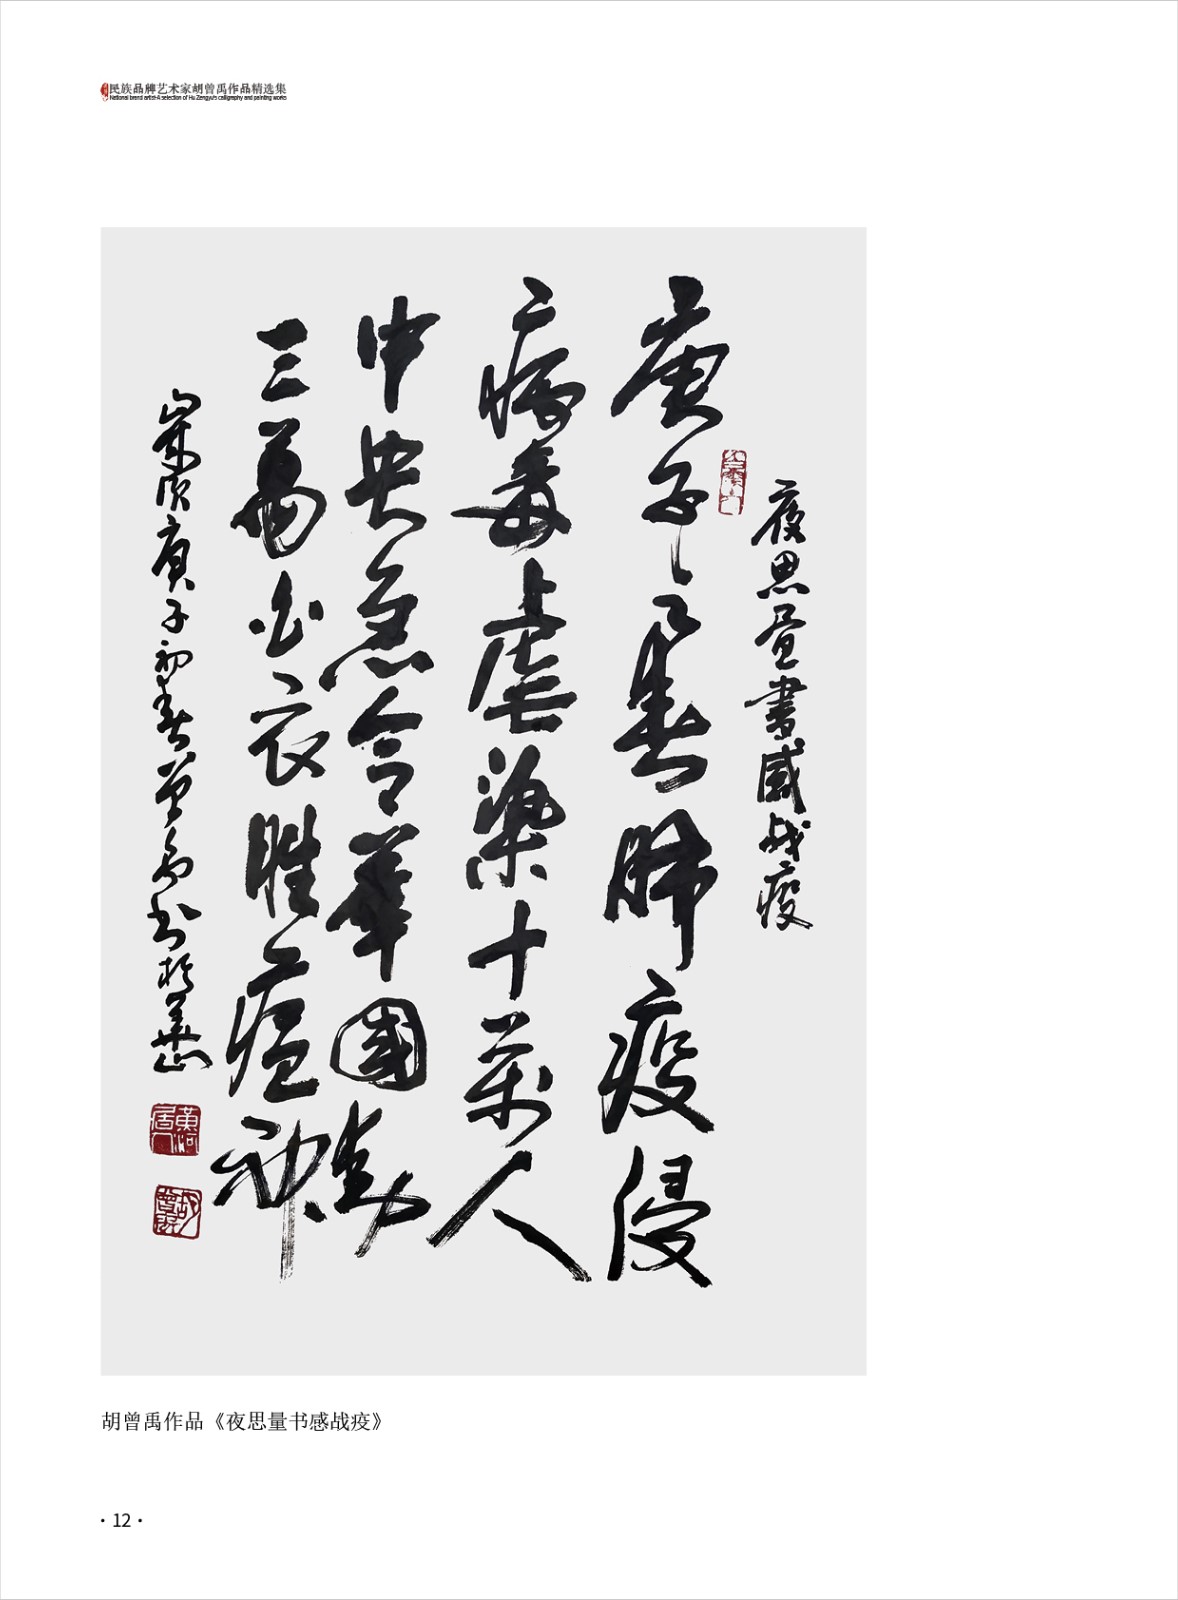 民族品牌艺术家胡曾禹作品精选集
National brand artist-A selection of Hu Zengyu's calligraphy and painting works
夜思量書感战疫
庚子之春肺疫侵
病毒虐染十萬人
中央急令華國動
三萬白衣胜瘟神
歲次庚子初春曾禹书於華山
胡曾禹作品《夜思量书感战疫》
·12·